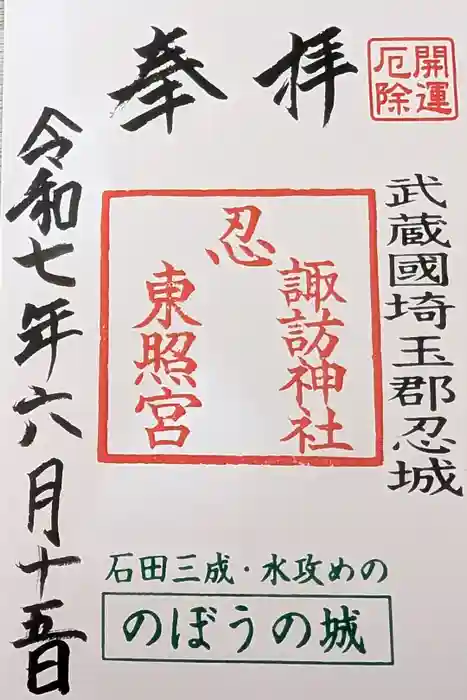 開運
厄除
奉拝
武蔵國埼玉郡忍城
忍
諏訪神社
東照宮
石田三成・水攻めの
のぼうの城
令和七年六月十五日